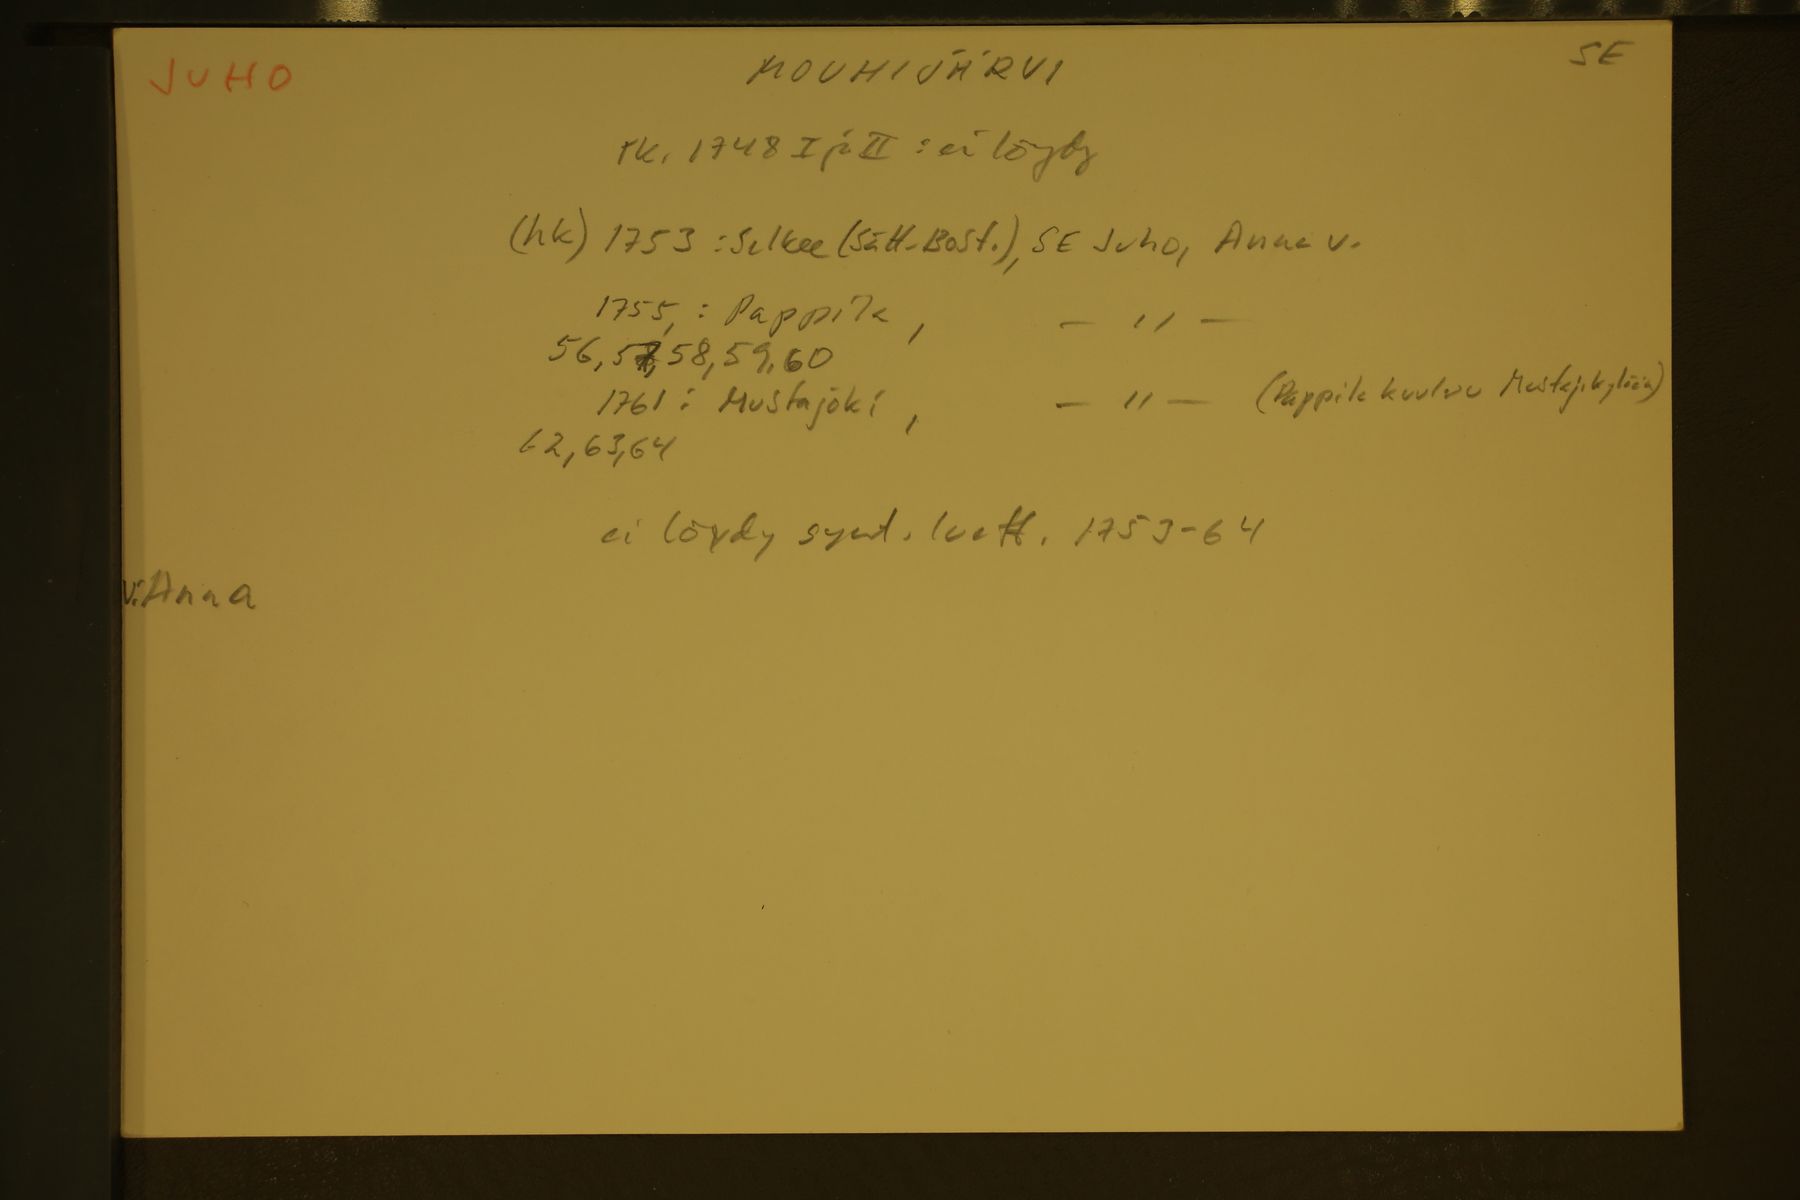 JUHO MOUHIJÄRVI SE
rk. 1748 I ja II : ei löydy
(hk) 1753 : Selkee (Sätt.Bost.), SE Juho, Anna v.
1755, : Pappila, — " —
56, 57, 58, 59, 60
1761 : Mustajoki, — " — (Pappila kuuluu Mustajokylään)
62, 63, 64
ei löydy synt. luett. 1753-64
v: Anna